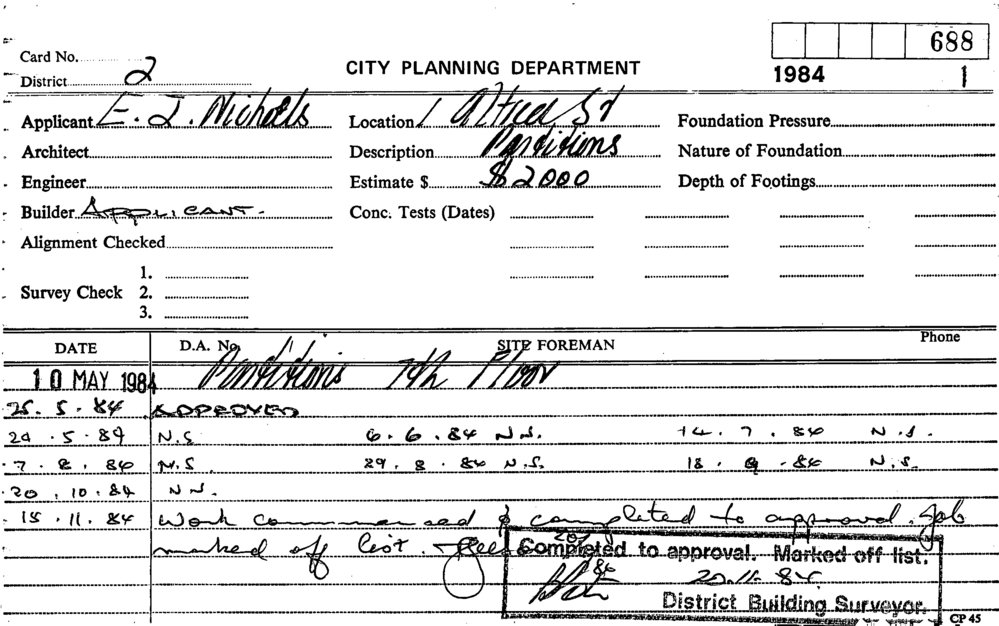 688
Card No.
CITY PLANNING DEPARTMENT
1984 1
District 2
Applicant E. J. Nicholls Location 1 Alfred St Foundation Pressure
Architect Description Partitions Nature of Foundation
Engineer Estimate $ $2000 Depth of Footings
Builder APPLICANT. Conc. Tests (Dates)
Alignment Checked
1.
Survey Check 2.
3.
DATE D.A. No. SITE FOREMAN Phone
10 MAY 1984 Partitions 7th Floor
25.5.84 APPROVED
29.5.84 N.S 6.6.84 N.S. 14.7.84 N.S.
7.8.84 N.S. 29.8.84 N.S. 18.9.84 N.S.
20.10.84 N.S.
15.11.84 Work commenced & completed to approval. Job
marked off list.
Completed to approval. Marked off list.
20.11.84
District Building Surveyor.
CP 45